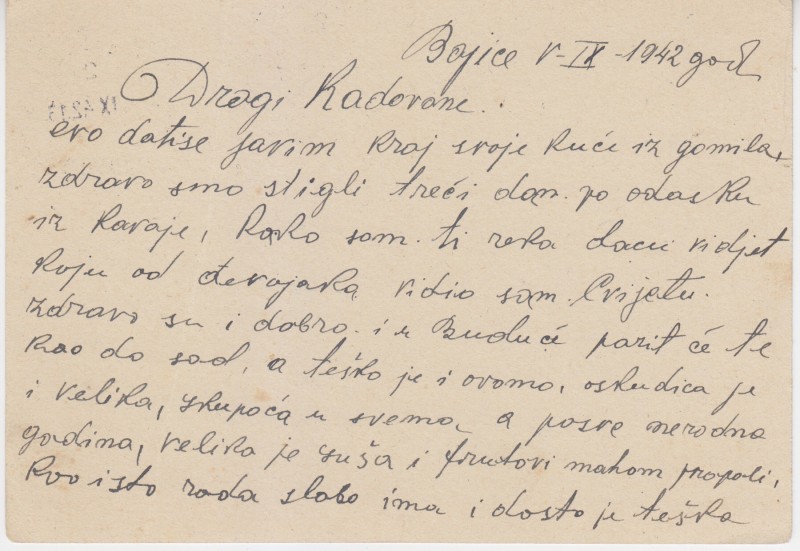 Bojice V-IX-1942 god
Dragi Radovane.
evo datise javim kraj svoje kući iz gomila,
zdravo smo stigli treći dan. po odasku
iz Kavaje, kako sam. ti reka dacu vidjet
koju od đevojaka vidio sam. Cvijetu.
zdravo su i dobro. i u Buduće pazit će te
kao do sad, a teško je i ovamo, oskudica je
i velika, skupoća u svema a posve nerodna
godina, velika je suša i frutovi mahom propali,
kao isto rada slabo ima i dosto je teška
IX.42.13